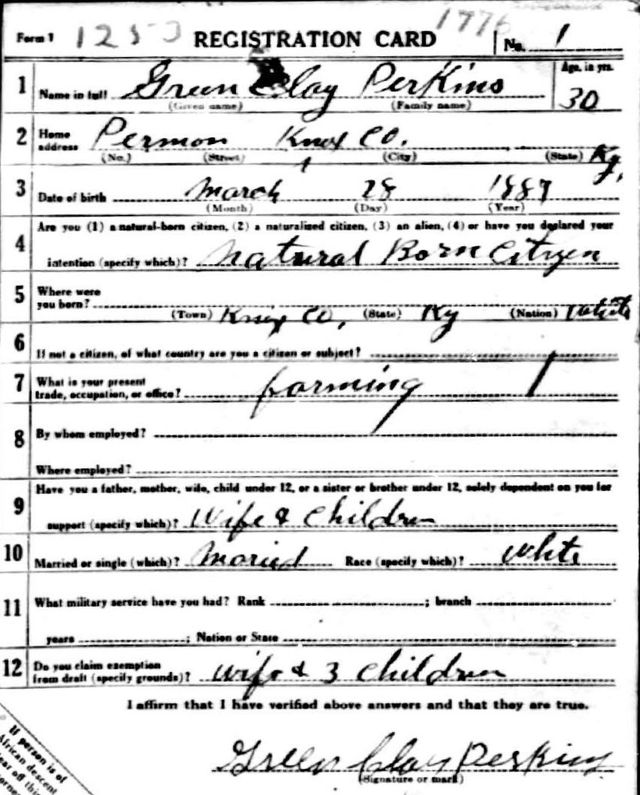 Form 1 1253 REGISTRATION CARD 1776 No. 1
1 Name in full Green Clay Perkins Age, in yrs. 30
(Given name) (Family name)
2 Home address Permon Knox Co. Ky,
(No.) (Street) (City) (State)
3 Date of birth March 28 1887
(Month) (Day) (Year)
4 Are you (1) a natural-born citizen, (2) a naturalized citizen, (3) an alien, (4) or have you declared your
intention (specify which)? Natural Born Citizen
5 Where were you born?
(Town) Knox Co, (State) Ky (Nation) White
6 If not a citizen, of what country are you a citizen or subject?
7 What is your present trade, occupation, or office? farming
8 By whom employed?
Where employed?
9 Have you a father, mother, wife, child under 12, or a sister or brother under 12, solely dependent on you for
support (specify which)? Wife & Children
10 Married or single (which)? Maried Race (specify which)? White
11 What military service have you had? Rank ; branch
years ; Nation or State
12 Do you claim exemption from draft (specify grounds)? Wife & 3 Children
I affirm that I have verified above answers and that they are true.
Green Clay Perkins
(Signature or mark)
If person is of
African descent
tear off this
corner